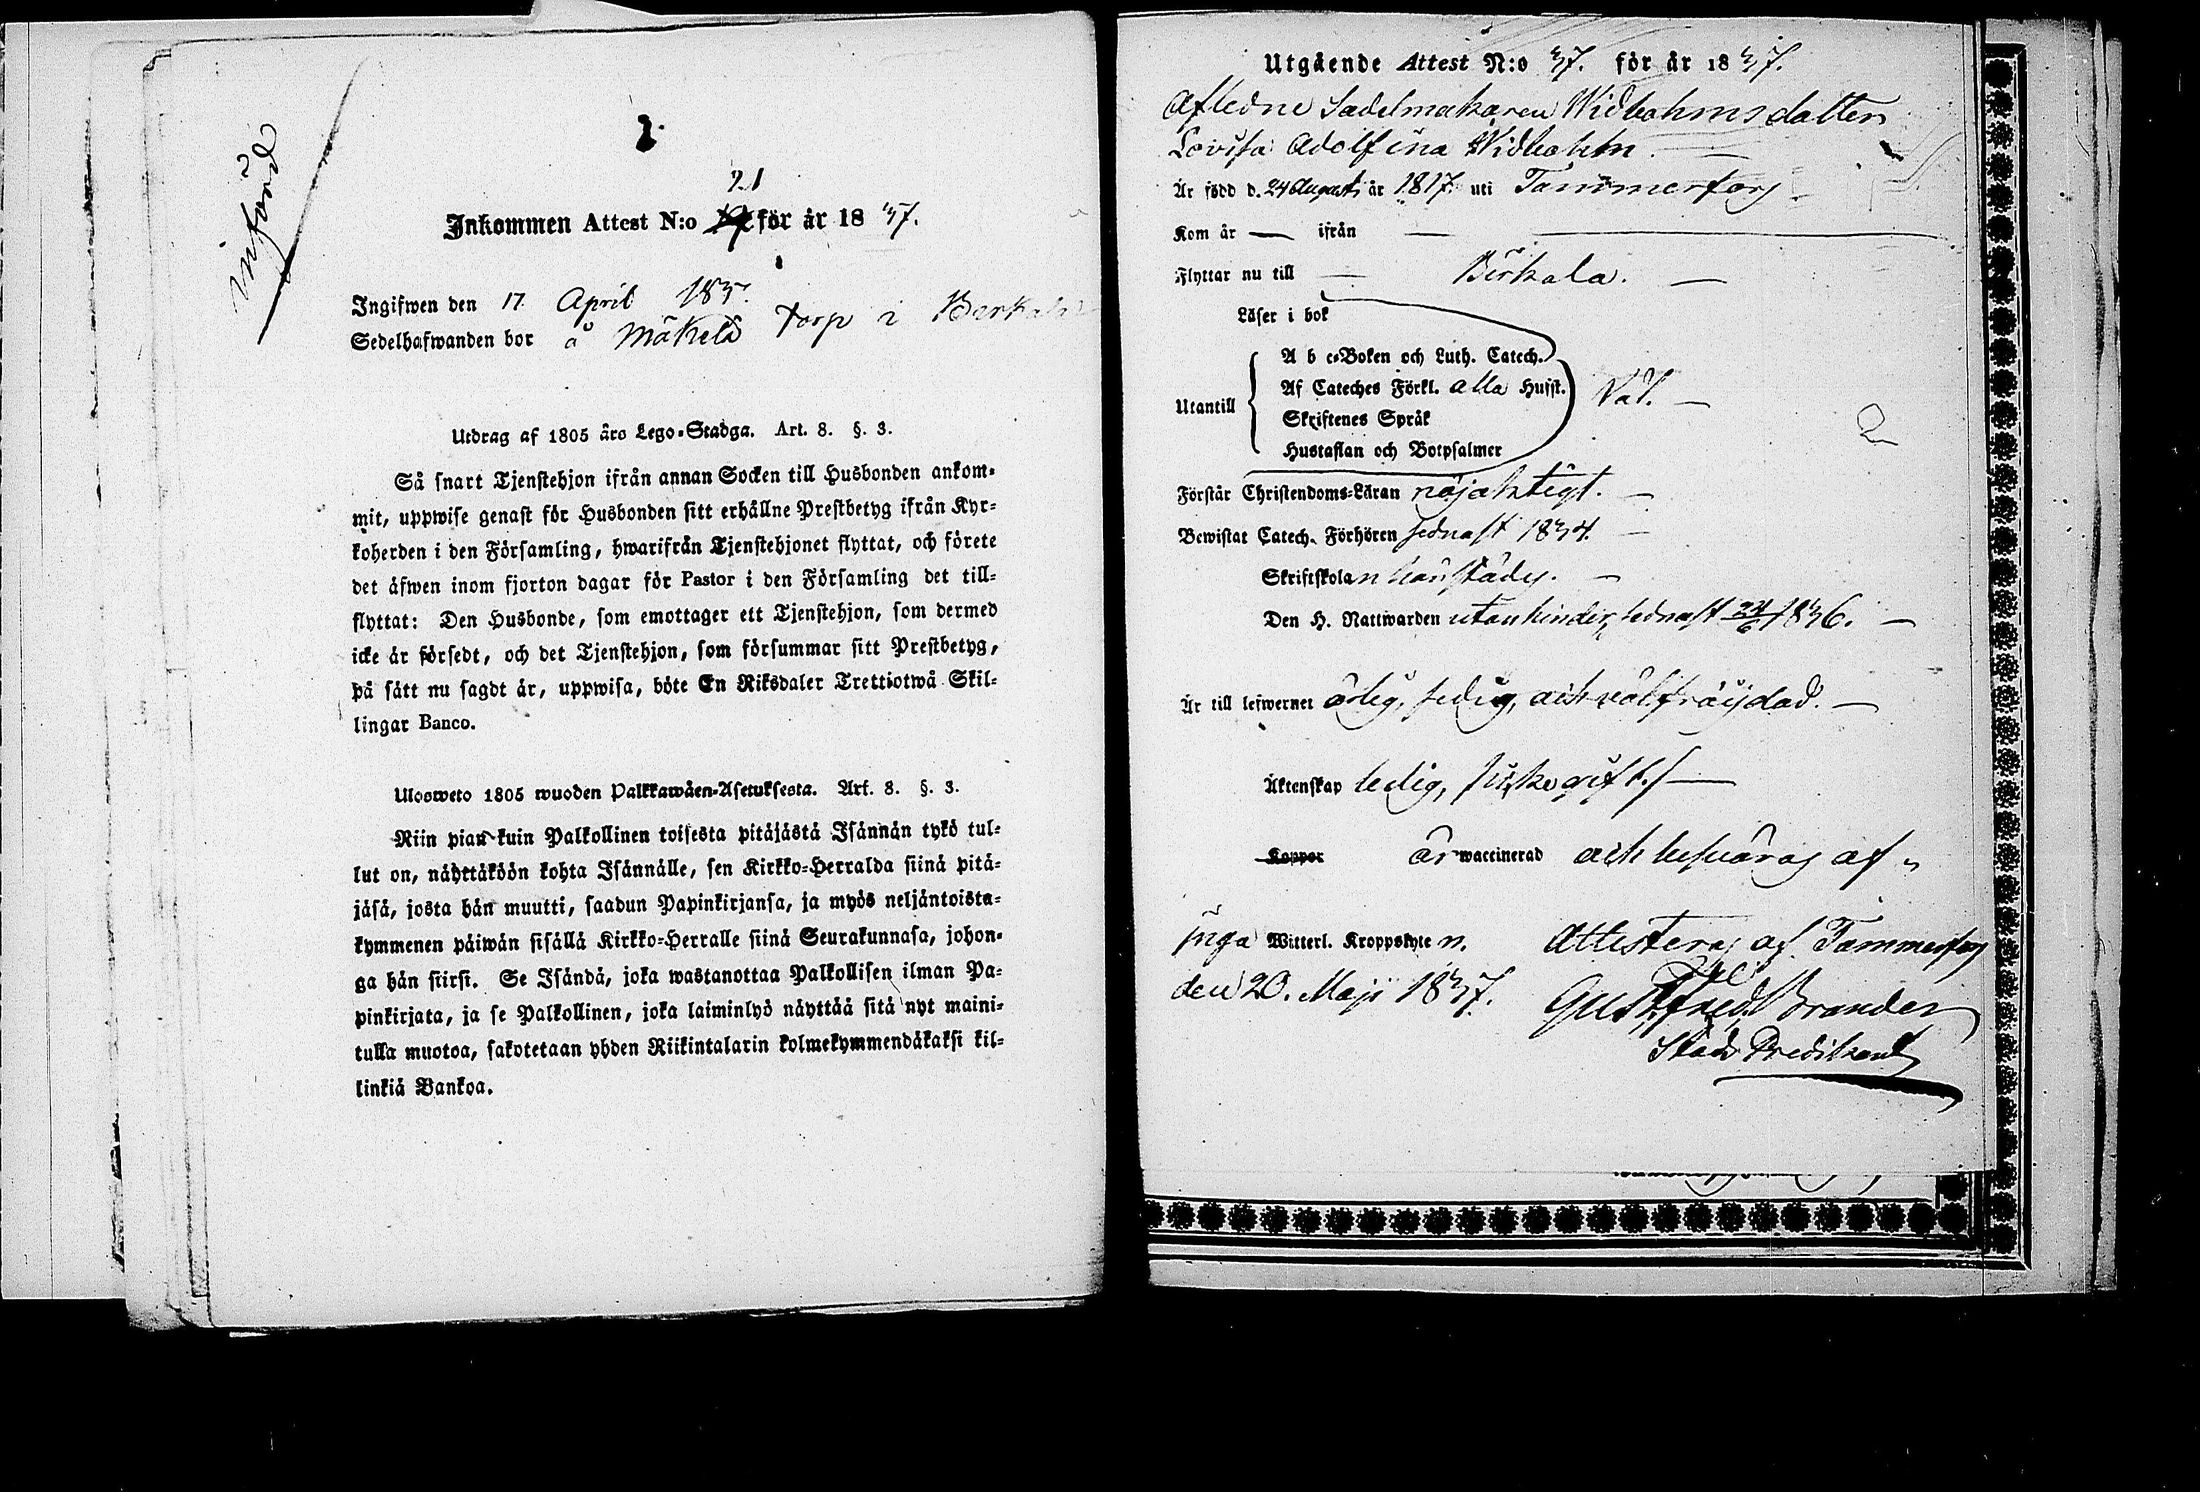 införd
1
21
Inkommen Attest N:o 19 för år 1837.
Ingifwen den 17 April 183
Sedelhafwanden bor å Mäkelä torp i Berkala
Utdrag af 1805 års Lego-Stadga. Art. 8. §. 3.
Så snart Tjenstehjon ifrån annan Socken till Husbonden ankom-
mit, uppwise genast för Husbonden sitt erhållne Prestbetyg ifrån Kyr-
koherden i den Församling, hwarifrån Tjenstehjonet flyttat, och förete
det äfwen inom fjorton dagar för Pastor i den Församling det till-
flyttat: Den Husbonde, som emottager ett Tjenstehjon, som dermed
icke är försedt, och det Tjenstehjon, som försummar sitt Prestbetyg,
på sätt nu sagdt är, uppwisa, böte En Riksdaler Trettiotwå Skil-
lingar Banco.
Ulosweto 1805 wuoden Palkkawäen-Asetuksesta. Art. 8. §. 3.
Niin pian kuin Palkollinen toisesta pitäjästä Isännän tykö tul-
lut on, näyttäköön kohta Isännälle, sen Kirkko-Herralda siinä pitä-
jäsä, josta hän muutti, saadun Papinkirjansa, ja myös neljäntoista-
kymmenen päiwän sisällä Kirkko-Herralle siinä Seurakunnasa, johon-
ga hän siirsi. Se Isändä, joka wastanottaa Palkollisen ilman Pa-
pinkirjata, ja se Palkollinen, joka laiminlyö näyttää sitä nyt maini-
tulla muotoa, sakotetaan yhden Riikintalarin kolmekymmendäkaksi kil-
linkiä Bankoa.
Utgående Attest N:o 37. för år 1837.
Afledne Sadelmakaren Widbohms dotter
Lovisa Adolfina Widbohm.
Är född d. 24 Augusti år 1817. uti Tammerfors
Kom år — ifrån —
Flyttar nu till — Birkala. —
Läser i bok
A b c-Boken och Luth. Catech.
Af Cateches Förkl. alla Husst.
Utantill
Skriftenes Språk
Hustaflan och Botpsalmer
Väl. —
2
Förstår Christendoms-Läran nöjaktigt. —
Bewistat Catech. Förhören sednast 1834. —
Skriftskolan
Den H. Nattwarden utan hinder, sednast 24/6 1836. —
Är till lefwernet ärlig, sedig, och välfräjdad. —
Äktenskap ledig, /icke gift./ —
Koppor är waccinerad och besväras af
inga Witterl. Kroppslyten. Attesteras af Tammerfors
den 20. Maji 1837. Gust. Fred. Brander
Stads Predikant